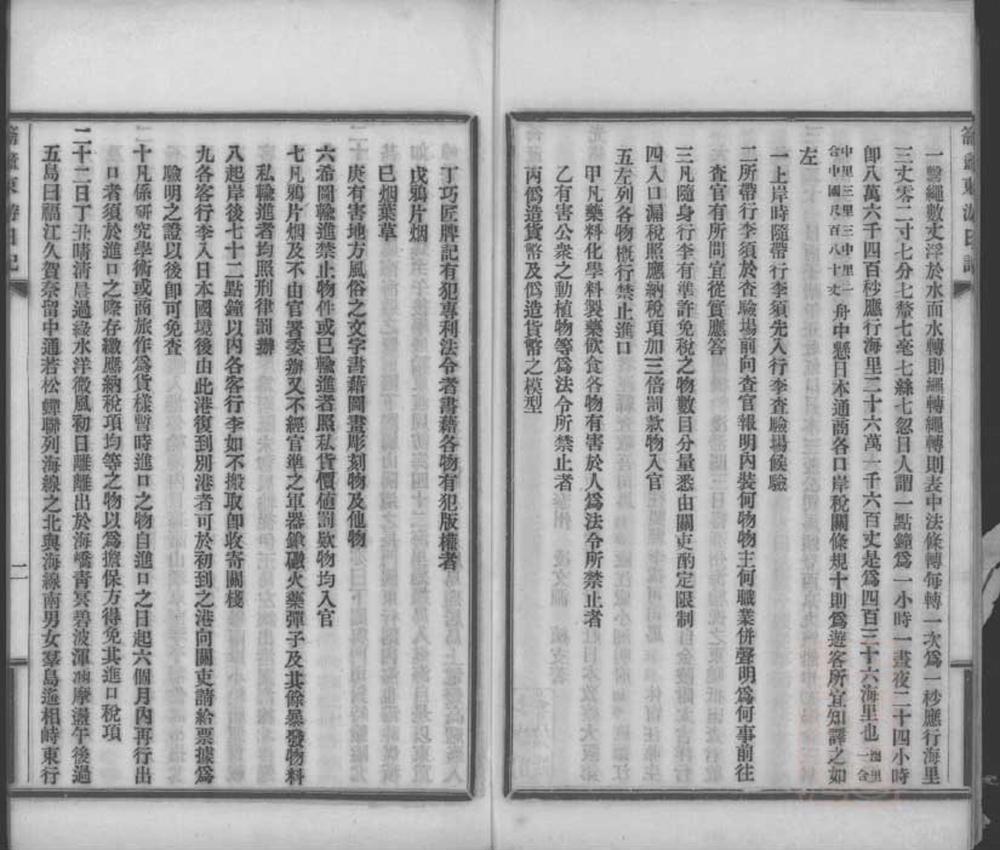 一繫繩數丈浮於水面水轉則繩轉繩轉則表中法條轉每轉一次爲一秒應行海里
三丈零二寸七分七釐七毫七絲七忽日人謂一點鐘爲一小時一晝夜二十四小時
卽八萬六千四百秒應行海里二十六萬一千六百丈是爲四百三十六海里也一海里
合中國里三里三中里一
合中國尺百八十丈舟中懸日本通商各口岸稅關條規十則爲遊客所宜知譯之如
左
一上岸時隨帶行李須先入行李查驗場候驗
二所帶行李須於查驗場前向查官報明內裝何物物主何職業併聲明爲何事前往
查官有所問宜從實應答
三凡隨身行李有準許免稅之物數目分量悉由關吏酌定限制
四入口漏稅照應納稅項加三倍罰款物入官
五左列各物槪行禁止進口
甲凡藥料化學料製藥飮食各物有害於人爲法令所禁止者
乙有害公衆之動植物等爲法令所禁止者
丙僞造貨幣及僞造貨幣之模型
丁巧匠牌記有犯專利法令者書藉各物有犯版權者
戊鴉片烟
巳烟葉草
庚有害地方風俗之文字書藉圖畫彫刻物及他物
六希圖輸進禁止物件或已輸進者照私貨價値罰欵物均入官
七凡鴉片烟及不由官署委辦又不經官準之軍器鎗礮火藥彈子及其餘暴發物料
私輸進者均照刑律罰辦
八起岸後七十二點鐘以內各客行李如不搬取卽收寄關棧
九各客行李入日本國境後由此港復到別港者可於初到之港向關吏請給票據爲
驗明之證以後卽可免查
十凡係研究學術或商旅作爲貨樣暫時進口之物自進口之日起六個月內再行出
口者須於進口之際存繳應納稅項均等之物以爲擔保方得免其進口稅項
二十二日丁丑晴淸晨過綠水洋微風初日離離出於海嶠靑冥碧波渾瀜摩盪午後過
五島曰福江久賀奈留中通若松蟬聯列海線之北與海線南男女羣島遙相峙東行
二